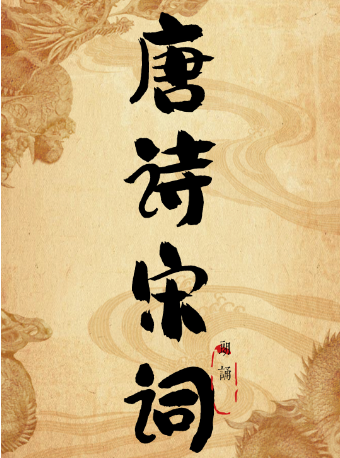 唐诗宋词
朗誦